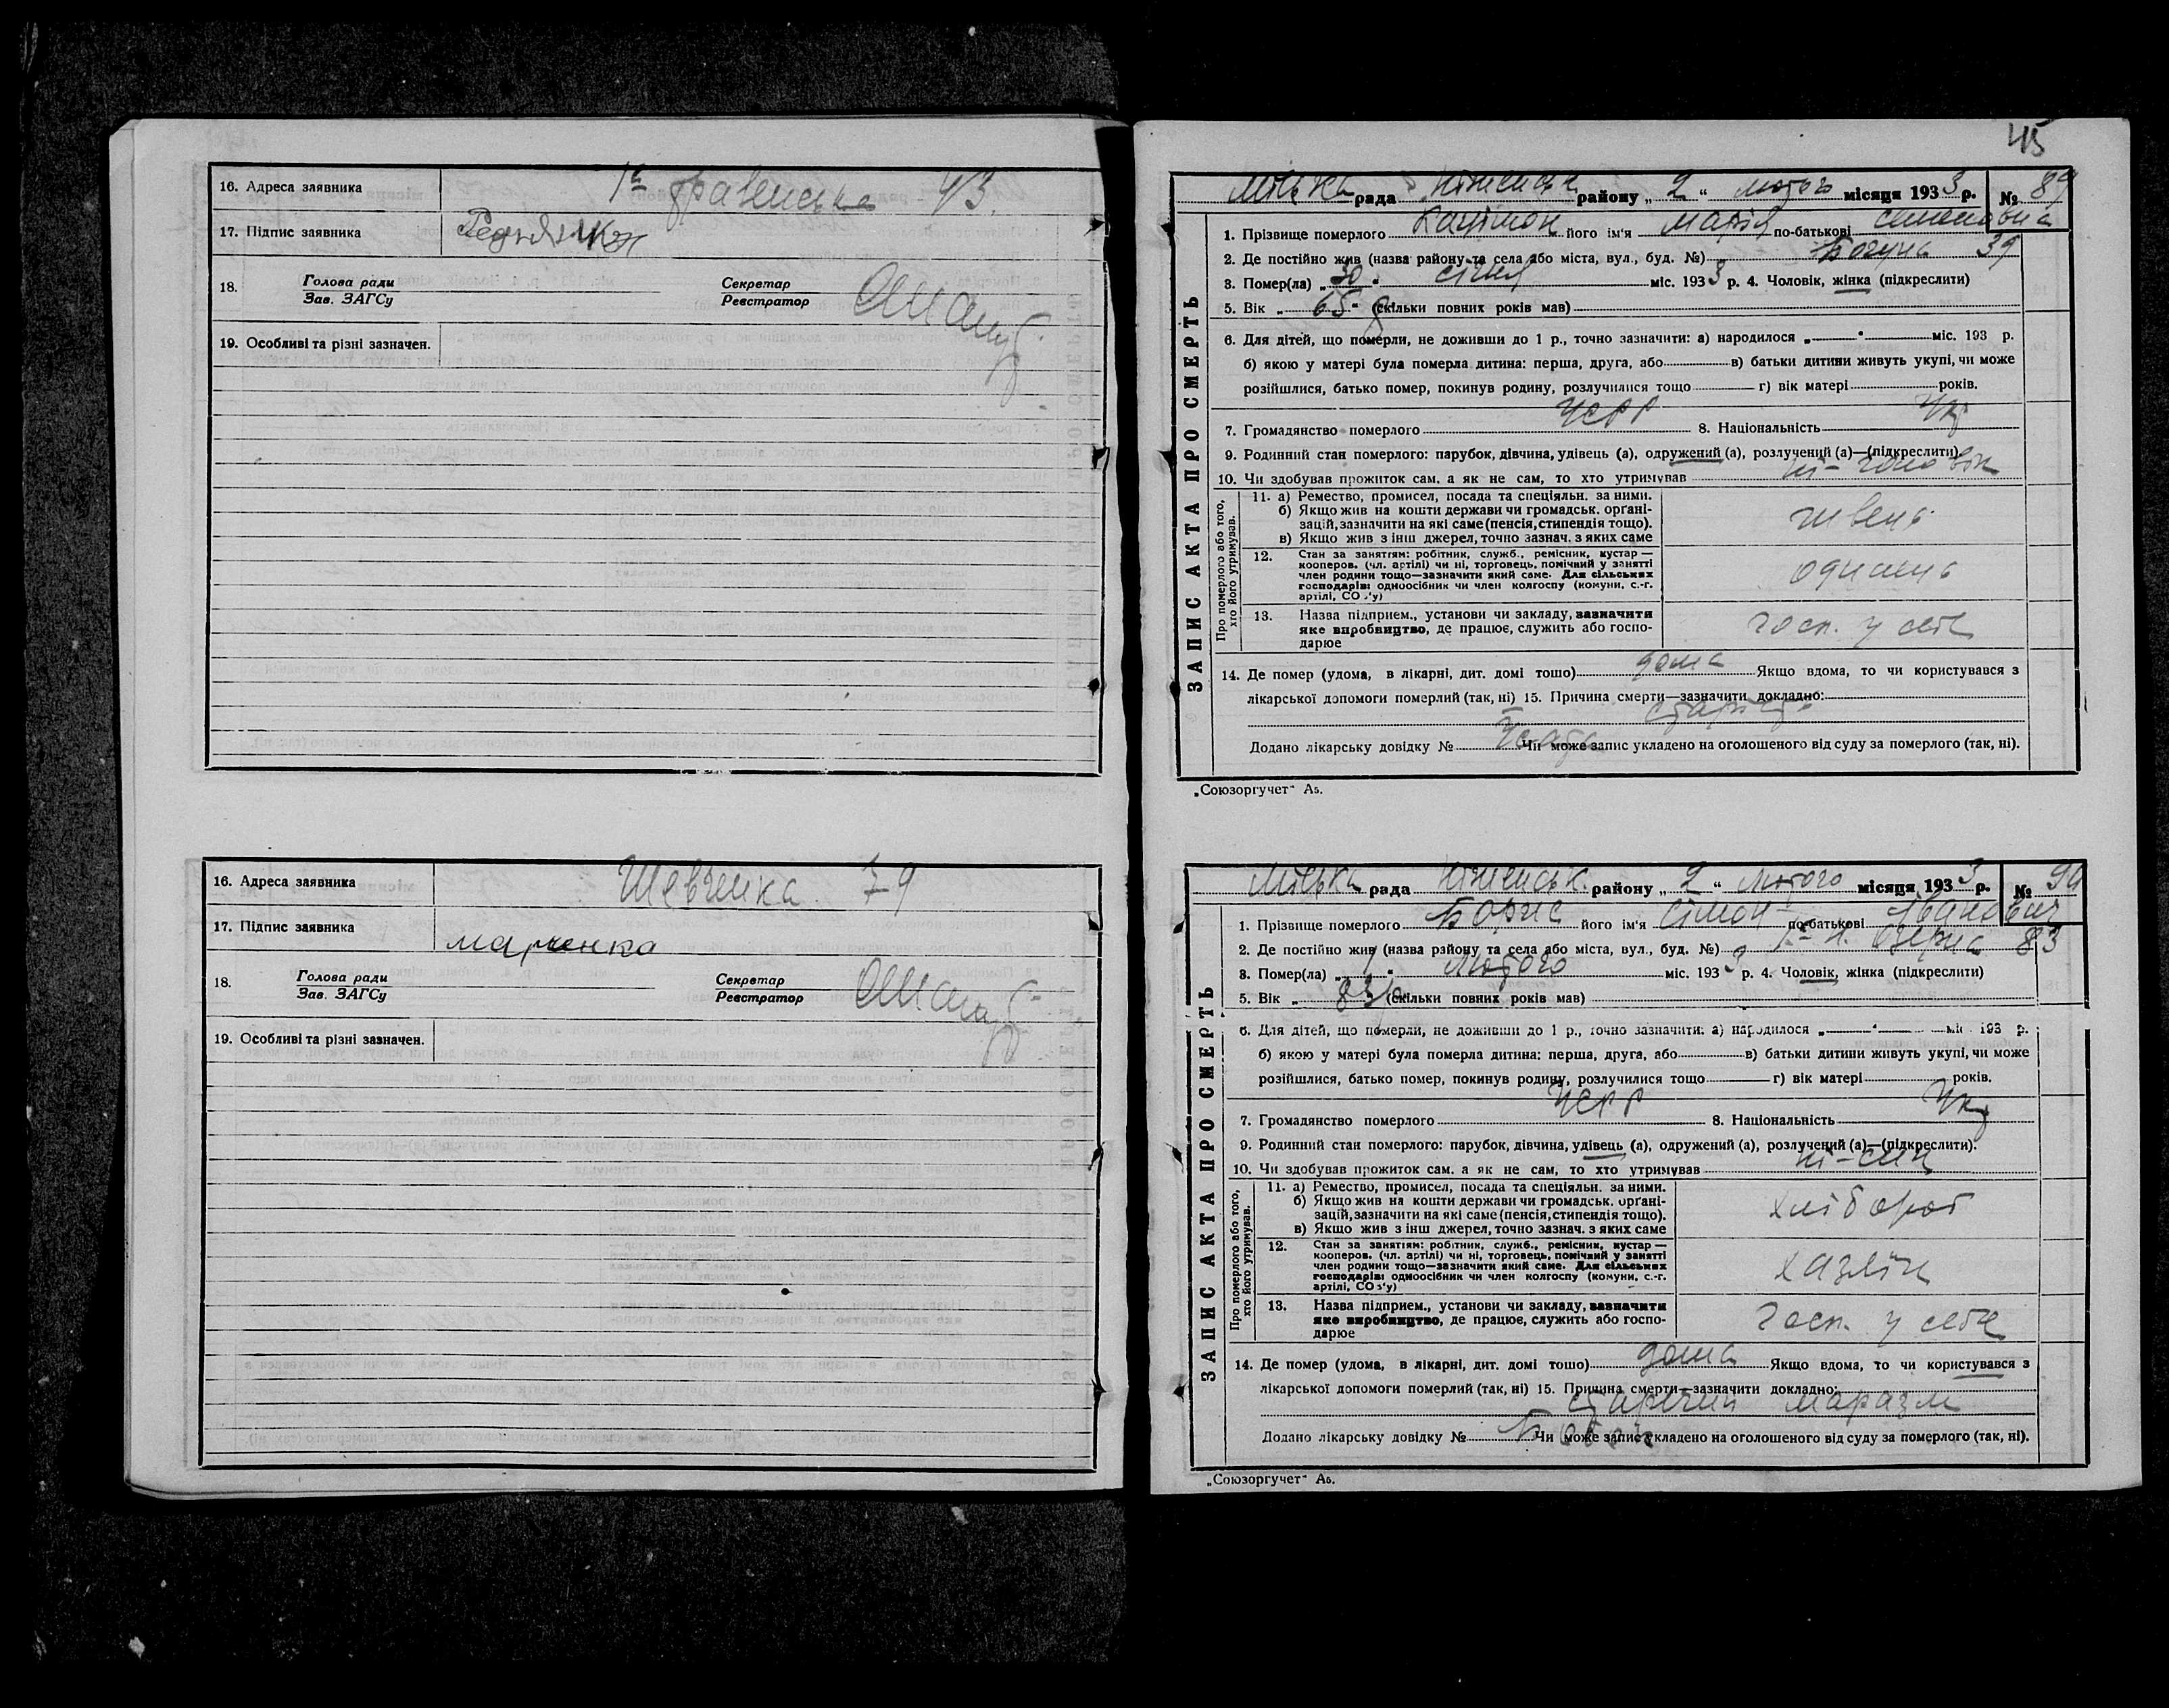 16. Адреса заявника 1ª 43.
17. Підпис заявника
18. Голова ради
Зав. ЗАГСу
Секретар
Реєстратор
19. Особливі та різні зазначен.
16. Адреса заявника Шевченка 79
17. Підпис заявника марченко
18. Голова ради
Зав. ЗАГСу
Секретар
Реєстратор
19. Особливі та різні зазначен.
45
ЗАПИС АКТА ПРО СМЕРТЬ
Міська рада Ніженськ району „ 2 “ лютого місяця 1933 р. № 89
1. Прізвище померлого його ім'я Марія по-батькові
2. Де постійно жив (назва району та села або міста, вул., буд. №) Богуна 39
3. Помер(ла) „ 30 “ січня міс. 1933 р. 4. Чоловік, жінка (підкреслити)
5. Вік „ 65 “ (скільки повних років мав)
6. Для дітей, що померли, не доживши до 1 р., точно зазначити: а) народилося „ “ міс. 193 р.
б) якою у матері була померла дитина: перша, друга, або в) батьки дитини живуть укупі, чи може
розійшлися, батько помер, покинув родину, розлучилися тощо г) вік матері років.
7. Громадянство померлого УСРР 8. Національність Укр
9. Родинний стан померлого: парубок, дівчина, удівець (а), одружений (а), розлучений (а)—(підкреслити).
10. Чи здобував прожиток сам, а як не сам, то хто утримував ні - чоловік
Про померлого або того, хто його утримував.
11. а) Ремество, промисел, посада та спеціяльн. за ними.
б) Якщо жив на кошти держави чи громадськ. органі-
зацій, зазначити на які саме (пенсія, стипендія тощо).
в) Якщо жив з інш джерел, точно зазнач. з яких саме
швець
12. Стан за заняттям: робітник, служб., ремісник, кустар —
кооперов. (чл. артілі) чи ні, торговець, помічний у занятті
член родини тощо—зазначити який саме. Для сільських
господарів: одноосібник чи член колгоспу (комуни, с.-г.
артілі, СОЗ'у)
13. Назва підприєм., установи чи закладу, зазначити
яке виробництво, де працює, служить або госпо-
дарює
госп. у себе
14. Де помер (удома, в лікарні, дит. домі тощо) дома Якщо вдома, то чи користувався з
лікарської допомоги померлий (так, ні) 15. Причина смерти—зазначити докладно:
старість
Додано лікарську довідку № Чи може запис укладено на оголошеного від суду за померлого (так, ні).
„Союзоргучет“ А5.
ЗАПИС АКТА ПРО СМЕРТЬ
Міська рада Ніженськ. району „ 2 “ лютого місяця 1933 р. № 90
1. Прізвище померлого Борис його ім'я Сімон по-батькові Іванович
2. Де постійно жив (назва району та села або міста, вул., буд. №) 83
3. Помер(ла) „ 1 “ лютого міс. 1933 р. 4. Чоловік, жінка (підкреслити)
5. Вік „ 83 “ (скільки повних років мав)
6. Для дітей, що померли, не доживши до 1 р., точно зазначити: а) народилося „ “ міс. 193 р.
б) якою у матері була померла дитина: перша, друга, або в) батьки дитини живуть укупі, чи може
розійшлися, батько помер, покинув родину, розлучилися тощо г) вік матері років.
7. Громадянство померлого УСРР 8. Національність Укр
9. Родинний стан померлого: парубок, дівчина, удівець (а), одружений (а), розлучений (а)—(підкреслити).
10. Чи здобував прожиток сам, а як не сам, то хто утримував ні - син
Про померлого або того, хто його утримував.
11. а) Ремество, промисел, посада та спеціяльн. за ними.
б) Якщо жив на кошти держави чи громадськ. органі-
зацій, зазначити на які саме (пенсія, стипендія тощо).
в) Якщо жив з інш джерел, точно зазнач. з яких саме
хлібороб
12. Стан за заняттям: робітник, служб., ремісник, кустар —
кооперов. (чл. артілі) чи ні, торговець, помічний у занятті
член родини тощо—зазначити який саме. Для сільських
господарів: одноосібник чи член колгоспу (комуни, с.-г.
артілі, СОЗ'у)
хазяїн
13. Назва підприєм., установи чи закладу, зазначити
яке виробництво, де працює, служить або госпо-
дарює
госп. у себе
14. Де помер (удома, в лікарні, дит. домі тощо) дома Якщо вдома, то чи користувався з
лікарської допомоги померлий (так, ні) 15. Причина смерти—зазначити докладно:
старечий маразм
Додано лікарську довідку № Чи може запис укладено на оголошеного від суду за померлого (так, ні).
„Союзоргучет“ А5.